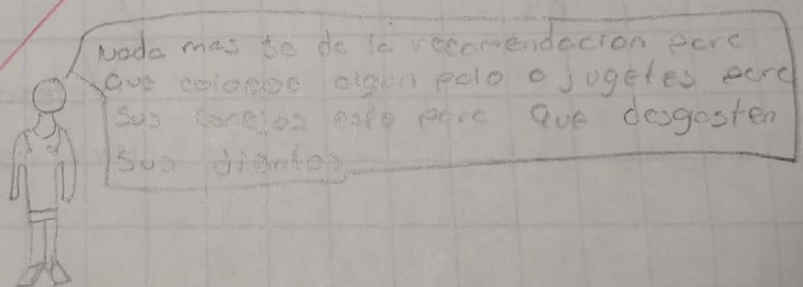 Nada mas se da la recomendacion para
que coloque algun palo o jugetes para
sus conejos esto para que desgasten
sus dientes